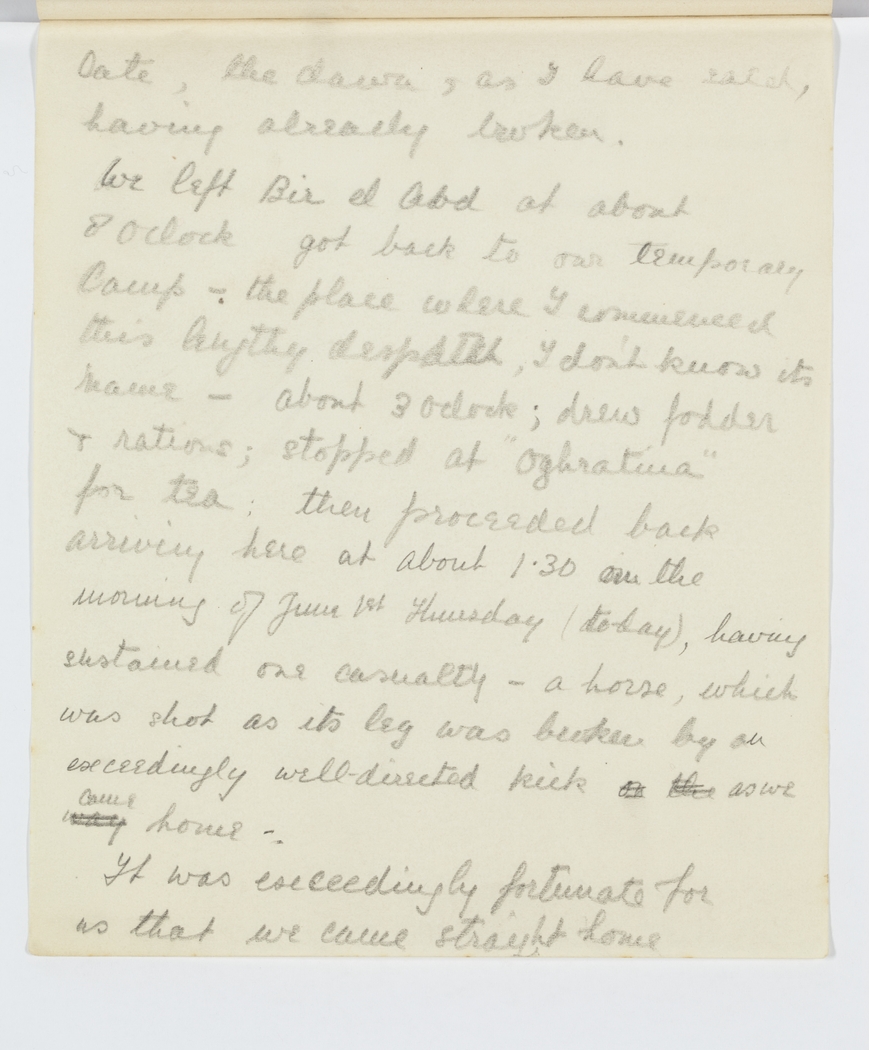 late, the dawn, as I have said,
having already broken.
We left Bir el Abd at about
8 Oclock got back to our temporary
Camp - the place where I commenced
this lengthy despatch, I don't know its
name - about 3 oclock; drew fodder
& rations; stopped at "Oghratina"
for tea; then proceeded back
arriving here at about 1.30 in the
morning of June 1st Thursday (today), having
sustained one casualty - a horse, which
was shot as its leg was broken by an
exceedingly well-directed kick on the as we
way came home -.
It was exceedingly fortunate for
us that we came straight home